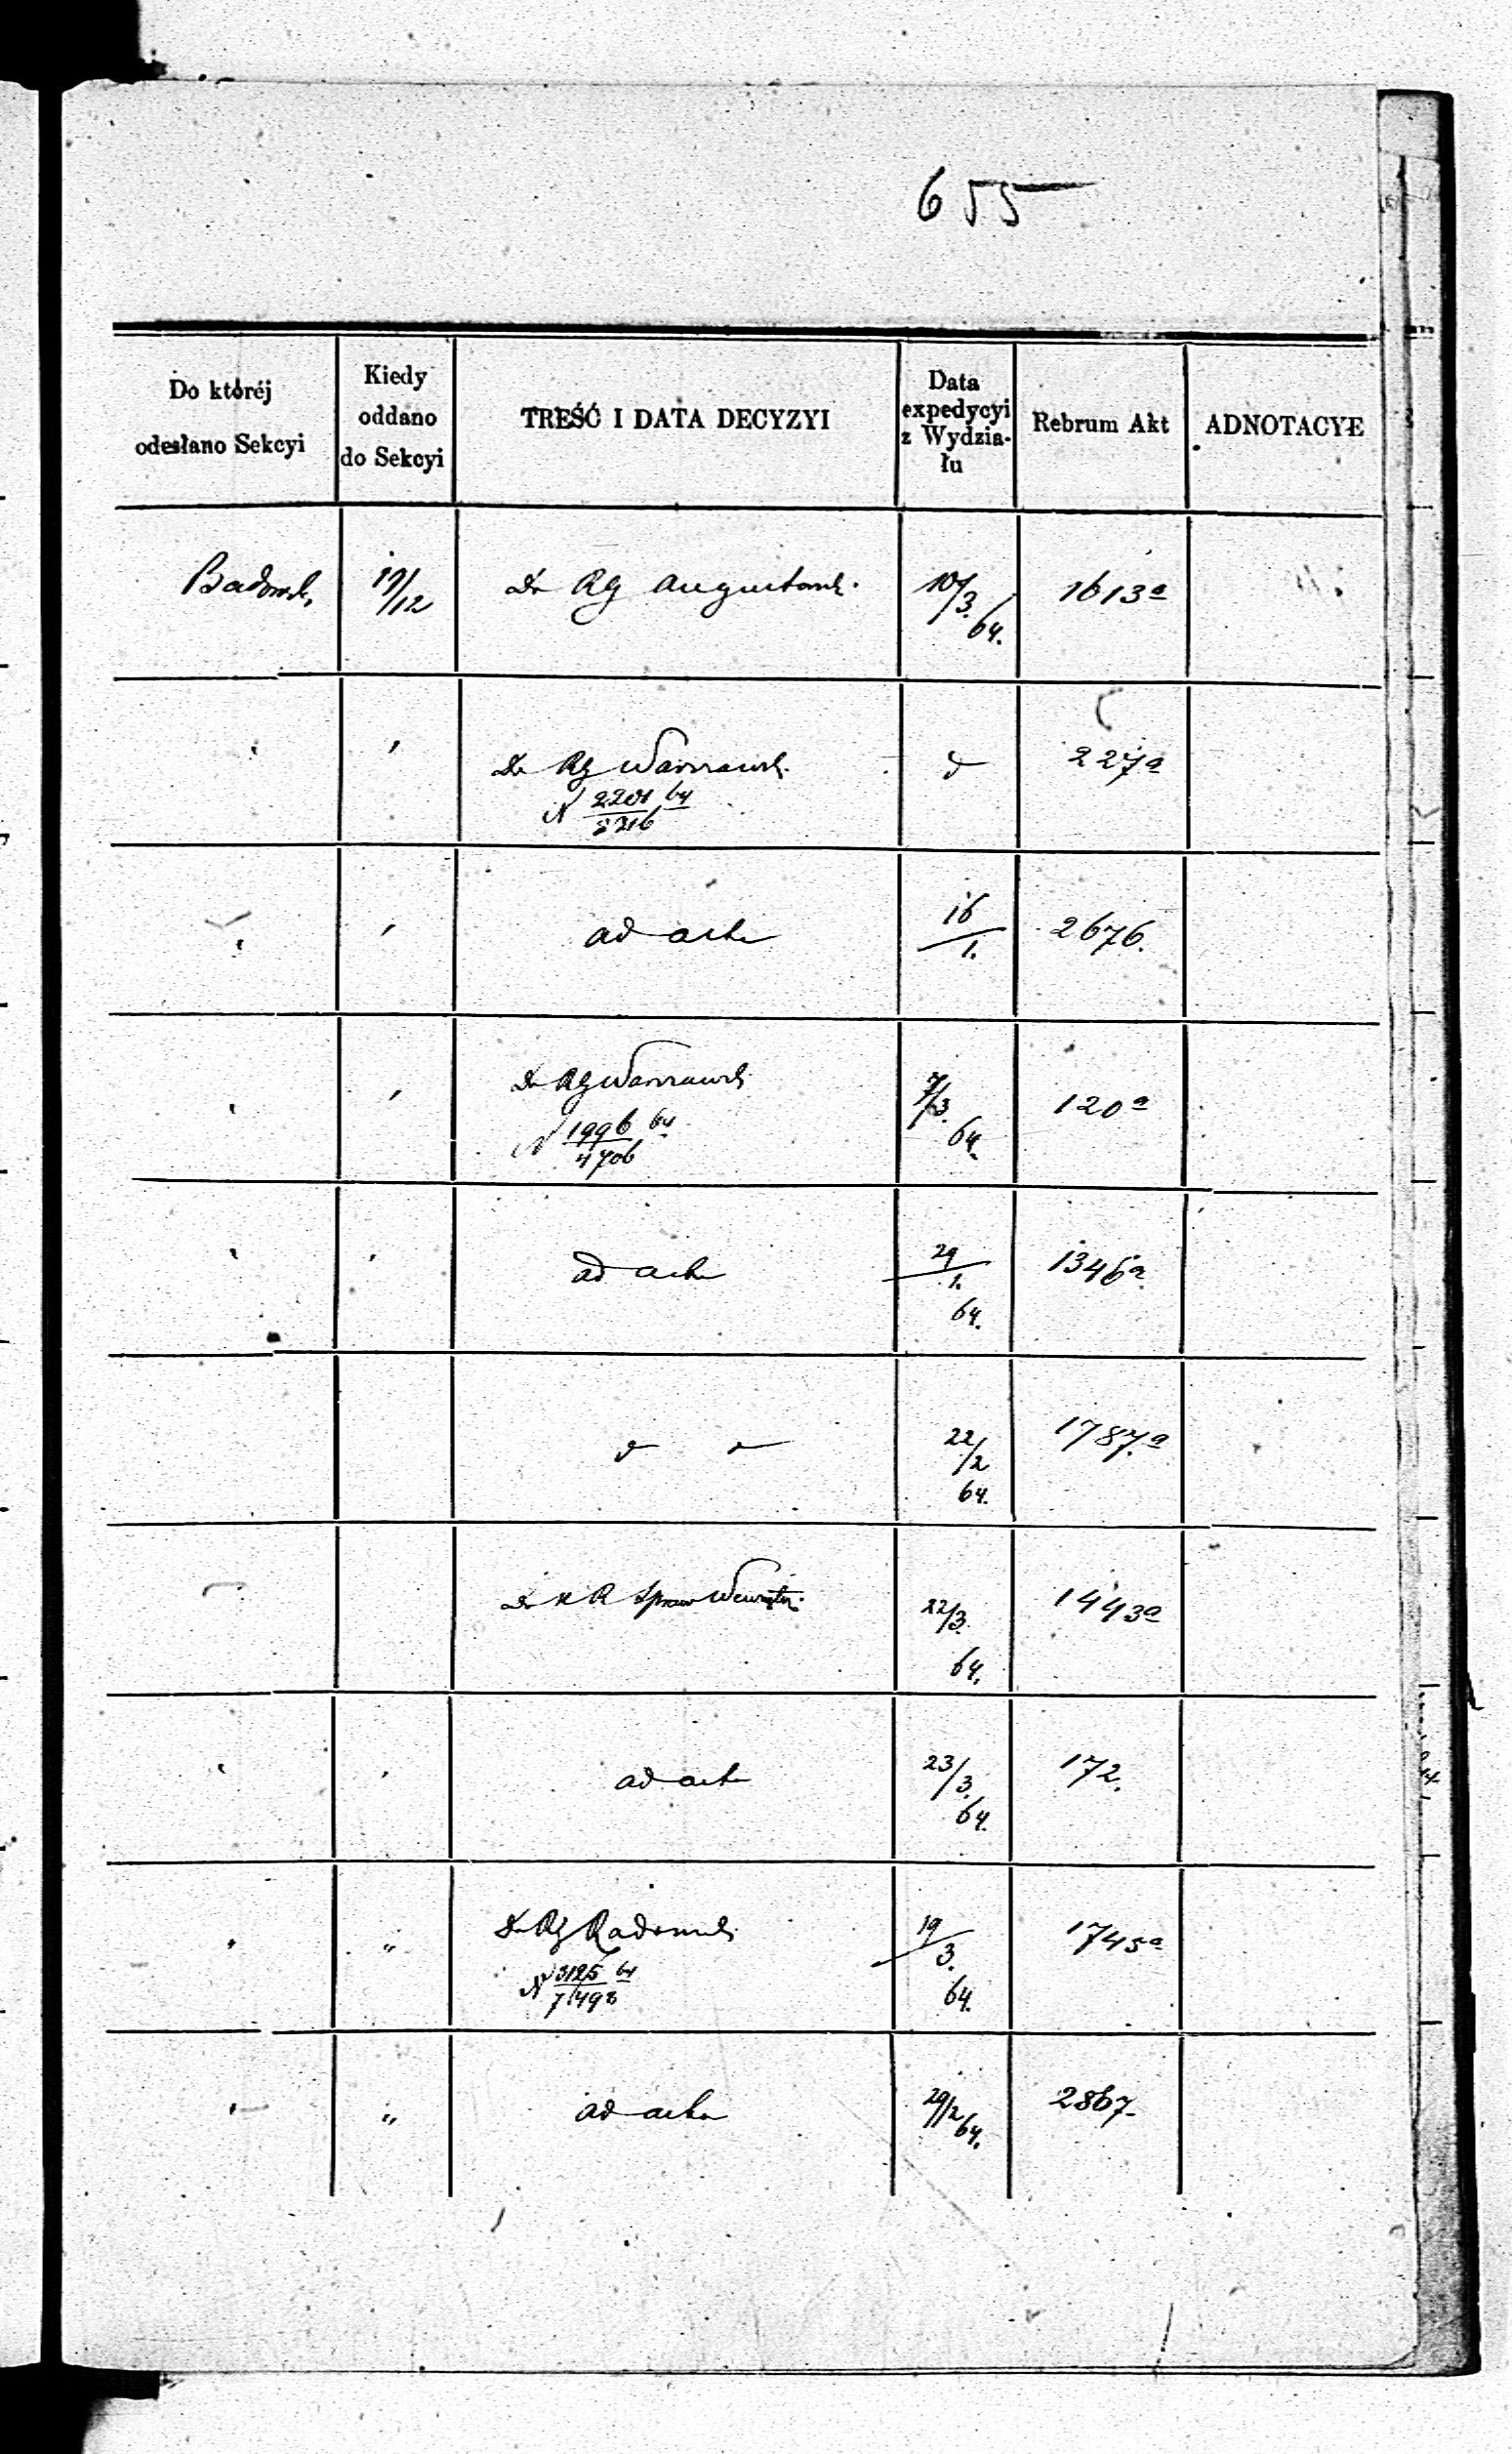 655
Do któréj odesłano Sekcyi
Kiedy oddano do Sekcyi
TREŚĆ I DATA DECYZYI
Data expedycyi z Wydziału
Rebrum Akt
ADNOTACYE
19/12 Do RG Augustowsk. 10/3. 64. 1613a
" " Do RG Warszawsk. d 227a
N 2201 64
" " ad acta 16/1. 2676.
" " Do RG Warszawsk 7/3. 64. 120a
N 1996/4706 64
" " ad acta 29/1. 64. 1346a
d d 22/2 64. 1787a
Do K R Spraw Wewnętrz. 22/3. 64. 1443a
" " ad acta 23/3. 64. 172.
" " Do RG Radomsk. 19/3. 64. 1745a
N 3125 64
" " ad acta 29/2 64. 2867.